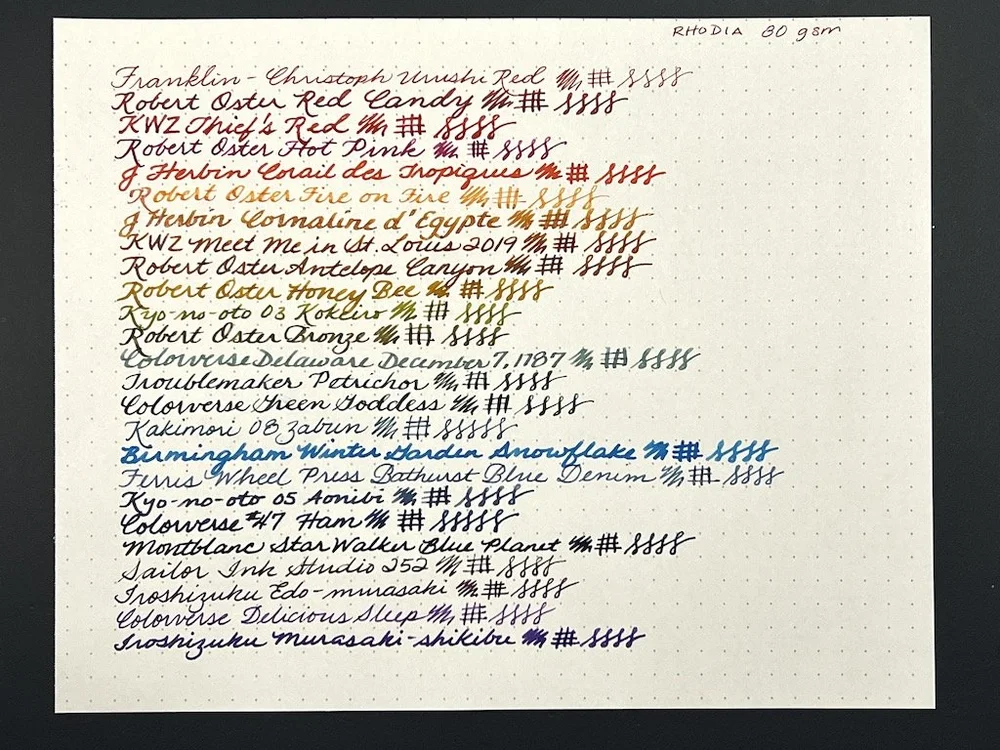 RHODIA 80 gsm
Franklin-Christoph Urushi Red
Robert Oster Red Candy
KWZ Thief's Red
Robert Oster Hot Pink
J Herbin Corail des Tropiques
Robert Oster Fire on Fire
J Herbin Cornaline d'Egypte
KWZ Meet Me in St. Louis 2019
Robert Oster Antelope Canyon
Robert Oster Honey Bee
Kyo-no-oto 03 Kokeiro
Robert Oster Bronze
Colorverse Delaware December 7, 1787
Troublemaker Petrichor
Colorverse Green Goddess
Kakimori 08 Zabun
Birmingham Winter Garden Snowflake
Ferris Wheel Press Bathurst Blue Denim
Kyo-no-oto 05 Aonibi
Colorverse #47 Ham
Montblanc StarWalker Blue Planet
Sailor Ink Studio 252
Iroshizuku Edo-murasaki
Colorverse Delicious Sleep
Iroshizuku Murasaki-shikibu